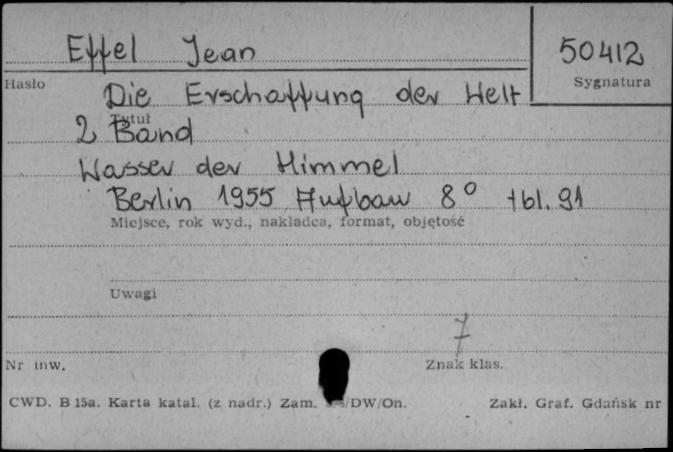 Effel Jean
50412
Hasło
Sygnatura
Die Erschaffung der Welt
Tytuł
2 Band
Wasser der Himmel
Berlin 1955 Aufbau 8° tbl. 91
Miejsce, rok wyd., nakładca, format, objętość
Uwagi
7
Nr inw.
Znak klas.
CWD. B 15a. Karta katal. (z nadr.) Zam. /DW/On.
Zakł. Graf. Gdańsk nr